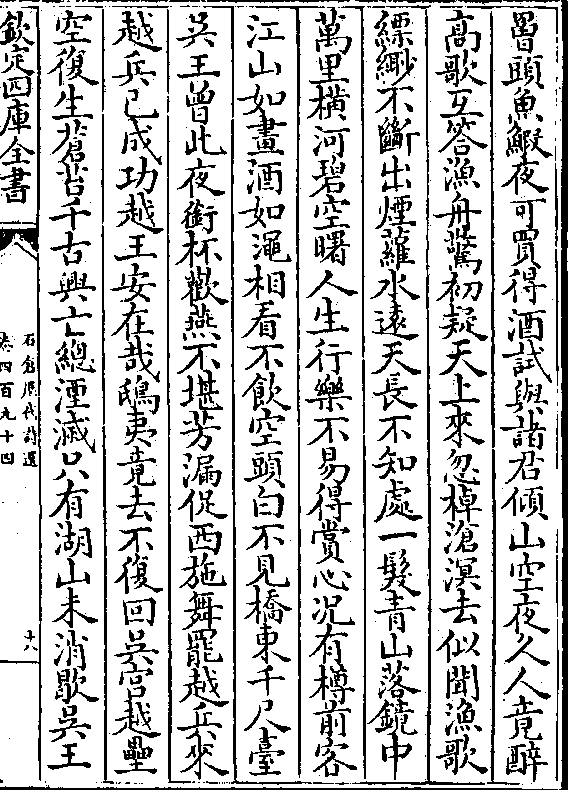 罾頭魚鰕夜可買得酒試與諸君傾山空夜久人竟醉
高歌互答漁舟驚初疑天上來忽棹滄溟去似聞漁歌
縹緲不斷出煙蘿水遠天長不知處一髮青山落鏡中
萬里橫河碧空曙人生行樂不易得賞心况有樽前客
江山如畫酒如澠相看不飲空頭白不見橋東千尺臺
吳王曾此夜銜杯歡燕不堪芳漏促西施舞罷越兵來
越兵已成功越王安在哉鴟夷竟去不復回吳宫越壘
空復生蒼苔千古興亡總湮滅只有湖山未消歇吳王
欽定四庫全書
石倉歷代詩選
卷四百九十四
十八